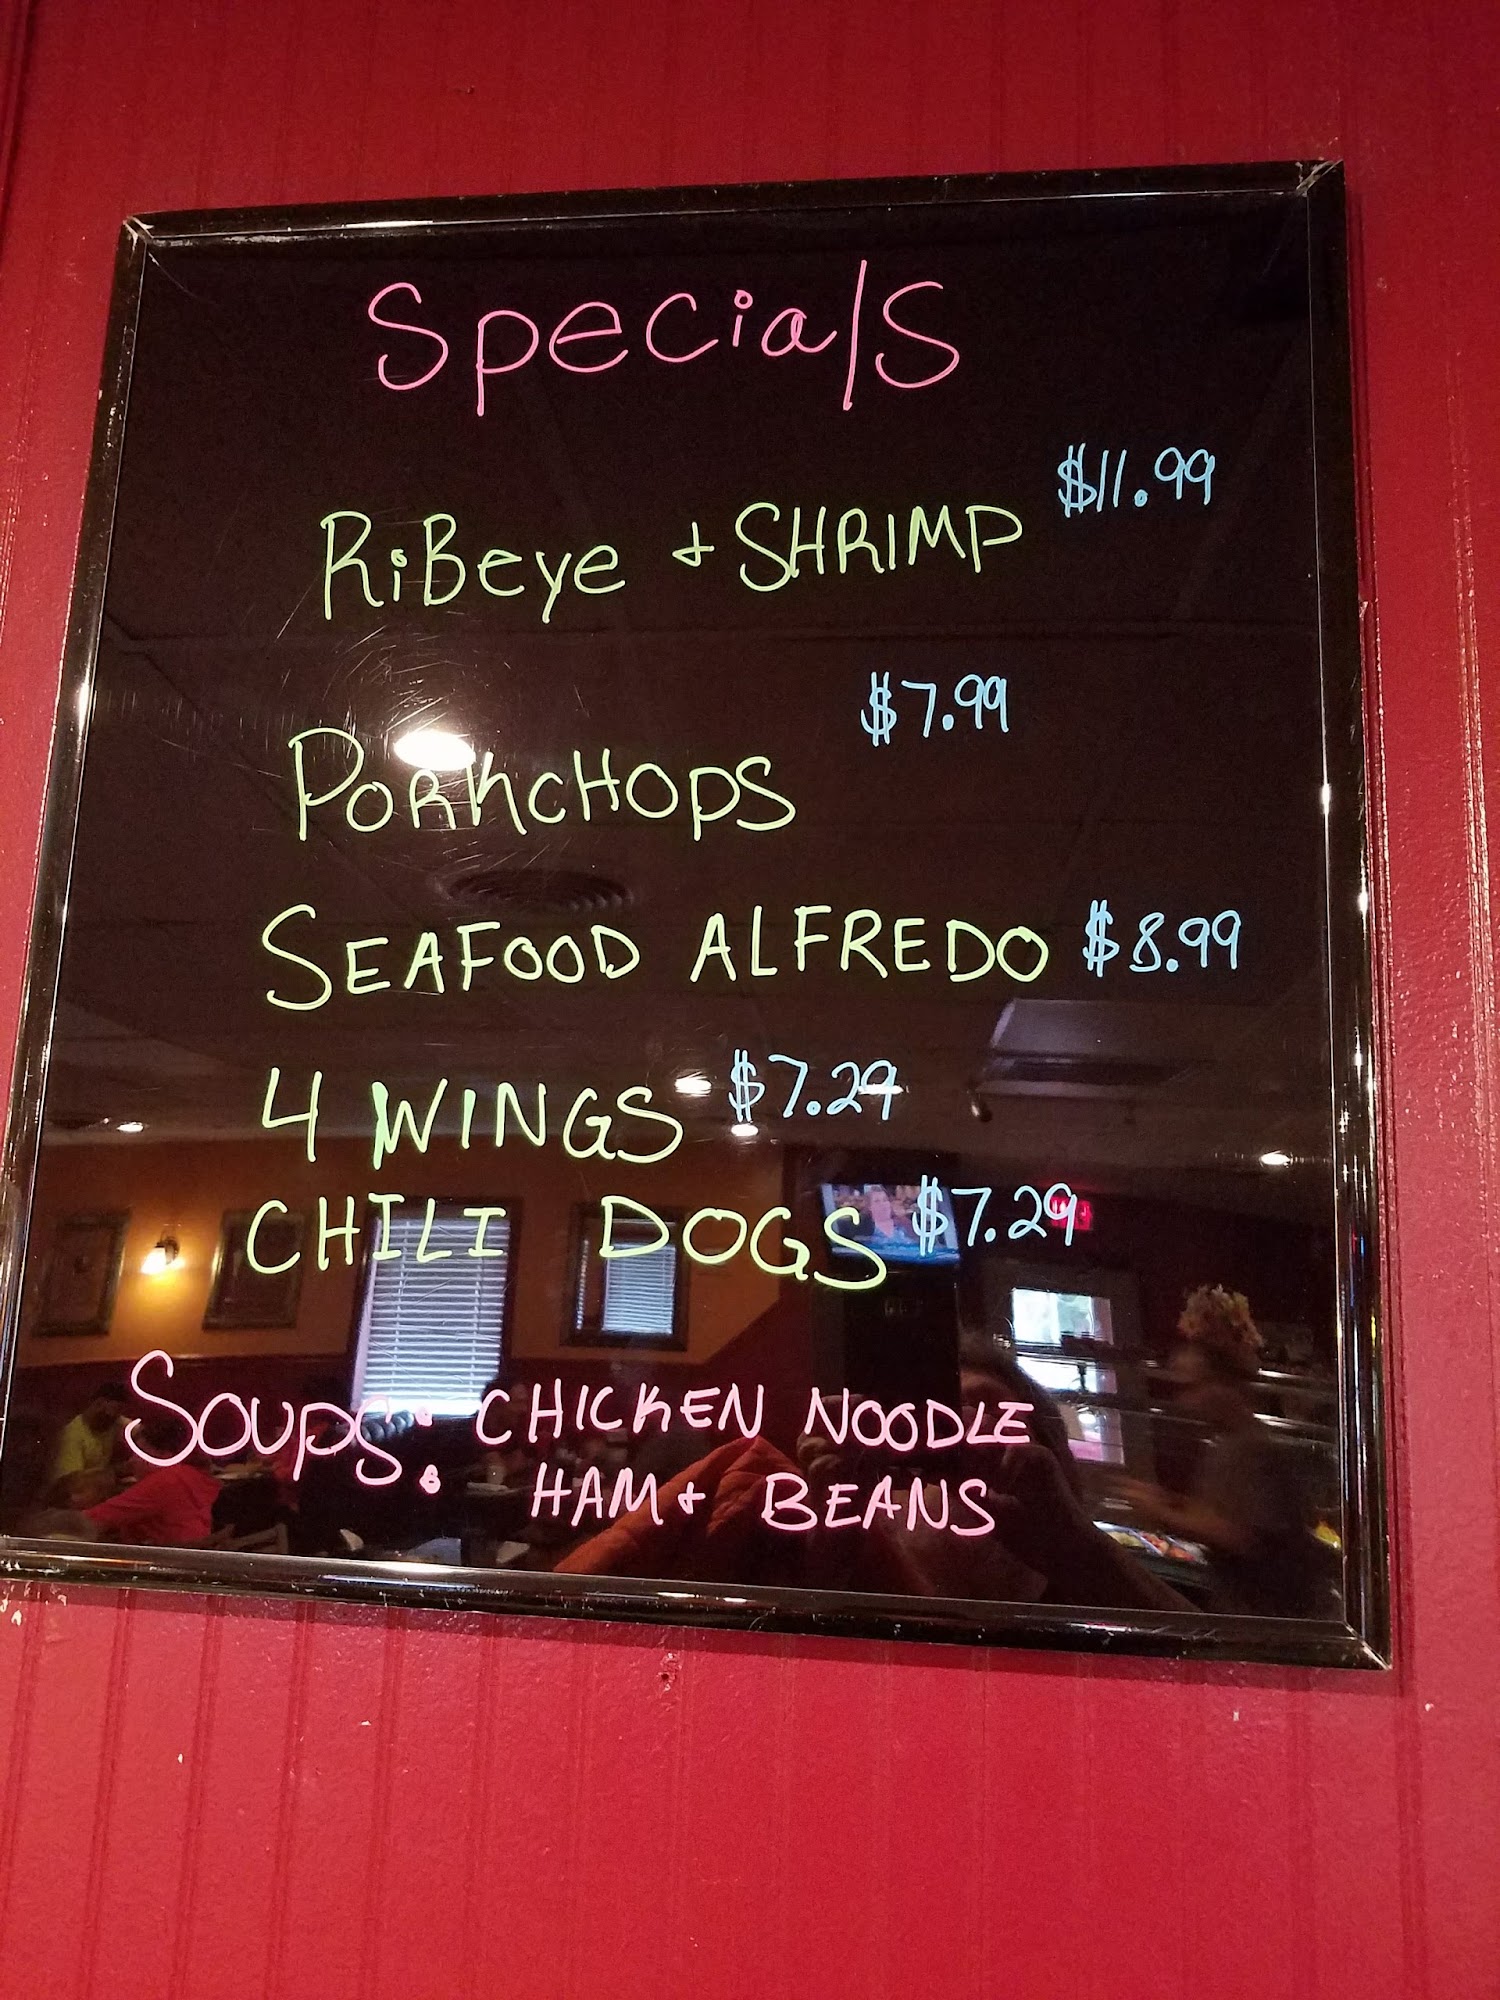 Specials
RiBeye + SHRIMP $11.99
PORKCHOPS $7.99
SEAFOOD ALFREDO $8.99
4 WINGS $7.29
CHILI DOGS $7.29
Soups: CHICKEN NOODLE
HAM + BEANS